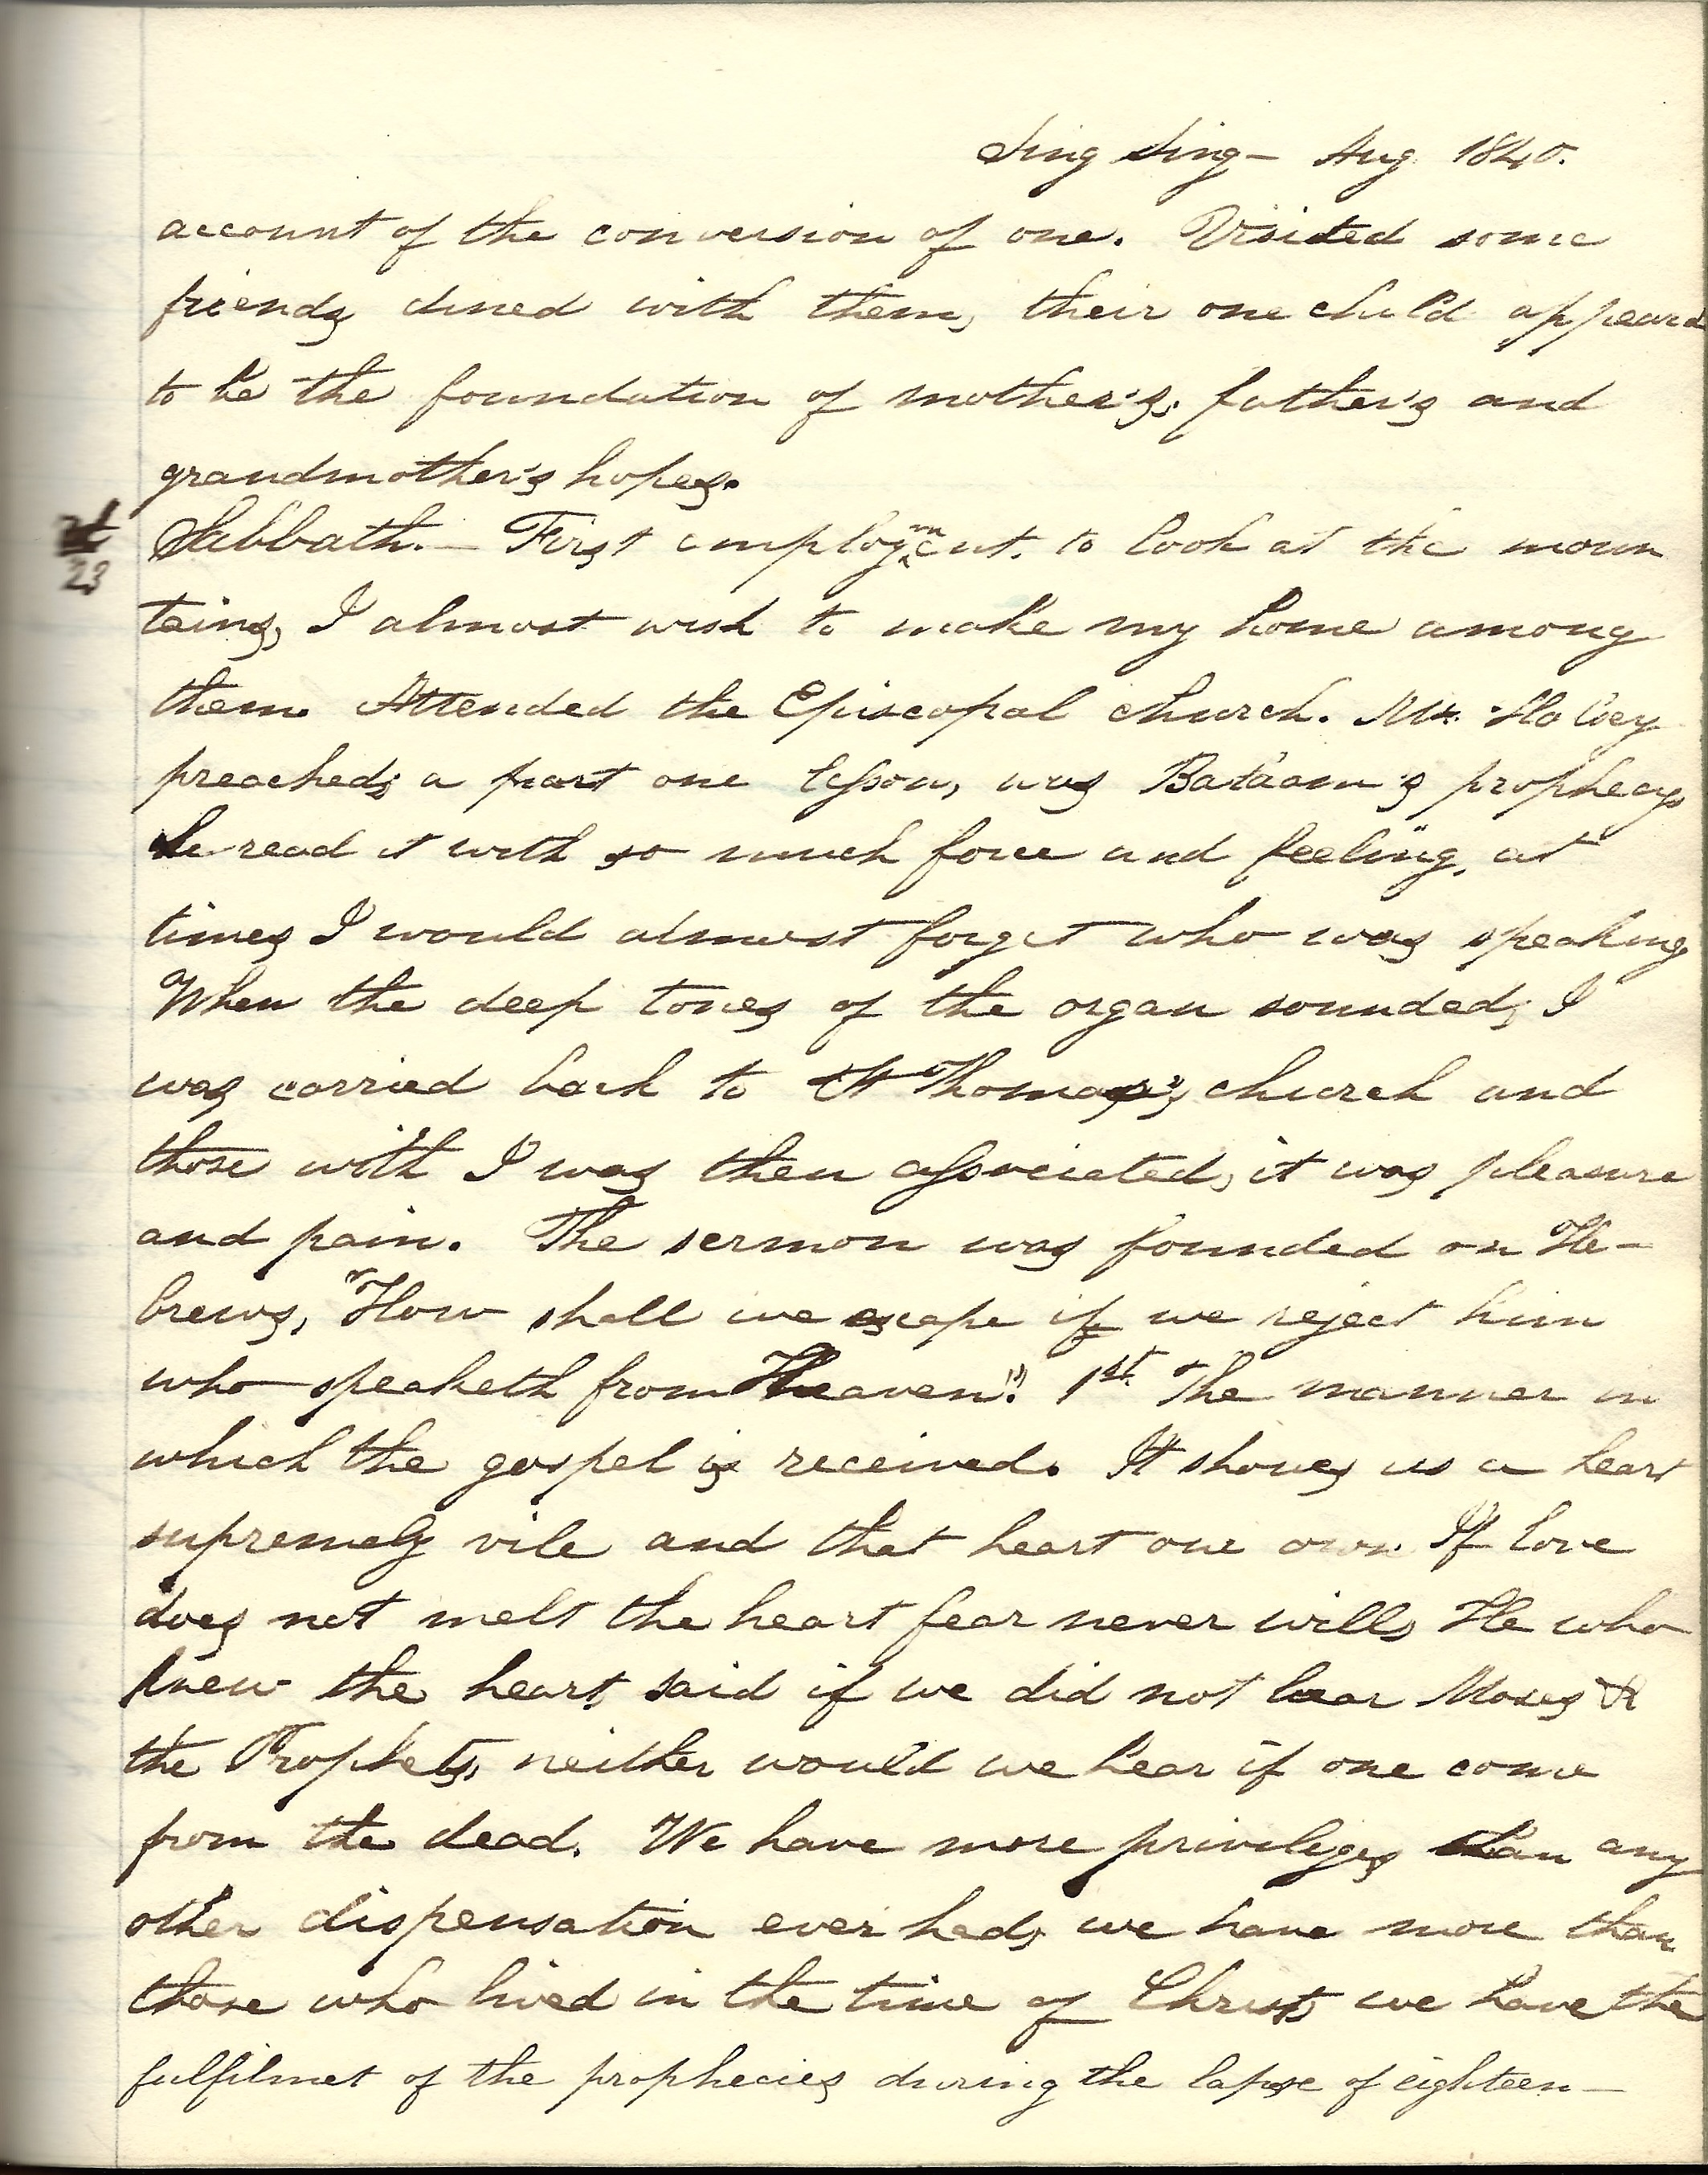 Sing Sing - Aug 1840.
account of the conversion of one. Visited some
friends dined with them, their one child appeard
to be the foundation of mother's, father's and
grandmother's hopes.
23
Sabbath. — First employment. to look at the moun
tains, I almost wish to make my home among
them. Attended the Episcopal church. Mr.
preached; a part one lesson, was Balaam's prophecy
he read it with so much force and feeling, at
times I would almost forget who was speaking
When the deep tones of the organ sounded, I
was carried back to St Thomas's church and
those with I was then associated, it was pleasure
and pain. The sermon was founded on He-
brews, "How shall we escape if we reject him
who speaketh from Heaven". 1st. The manner in
which the gospel is received. It shows us a heart
supremely vile and that heart our own If love
does not melt the heart fear never will, He who
knew the heart, said if we did not hear Moses &
the Prophets, neither would we hear if one come
from the dead. We have more privileges than any
other dispensation ever had, we have more than
those who lived in the time of Christ, we have the
fulfilmet of the prophecies during the lapse of eighteen —